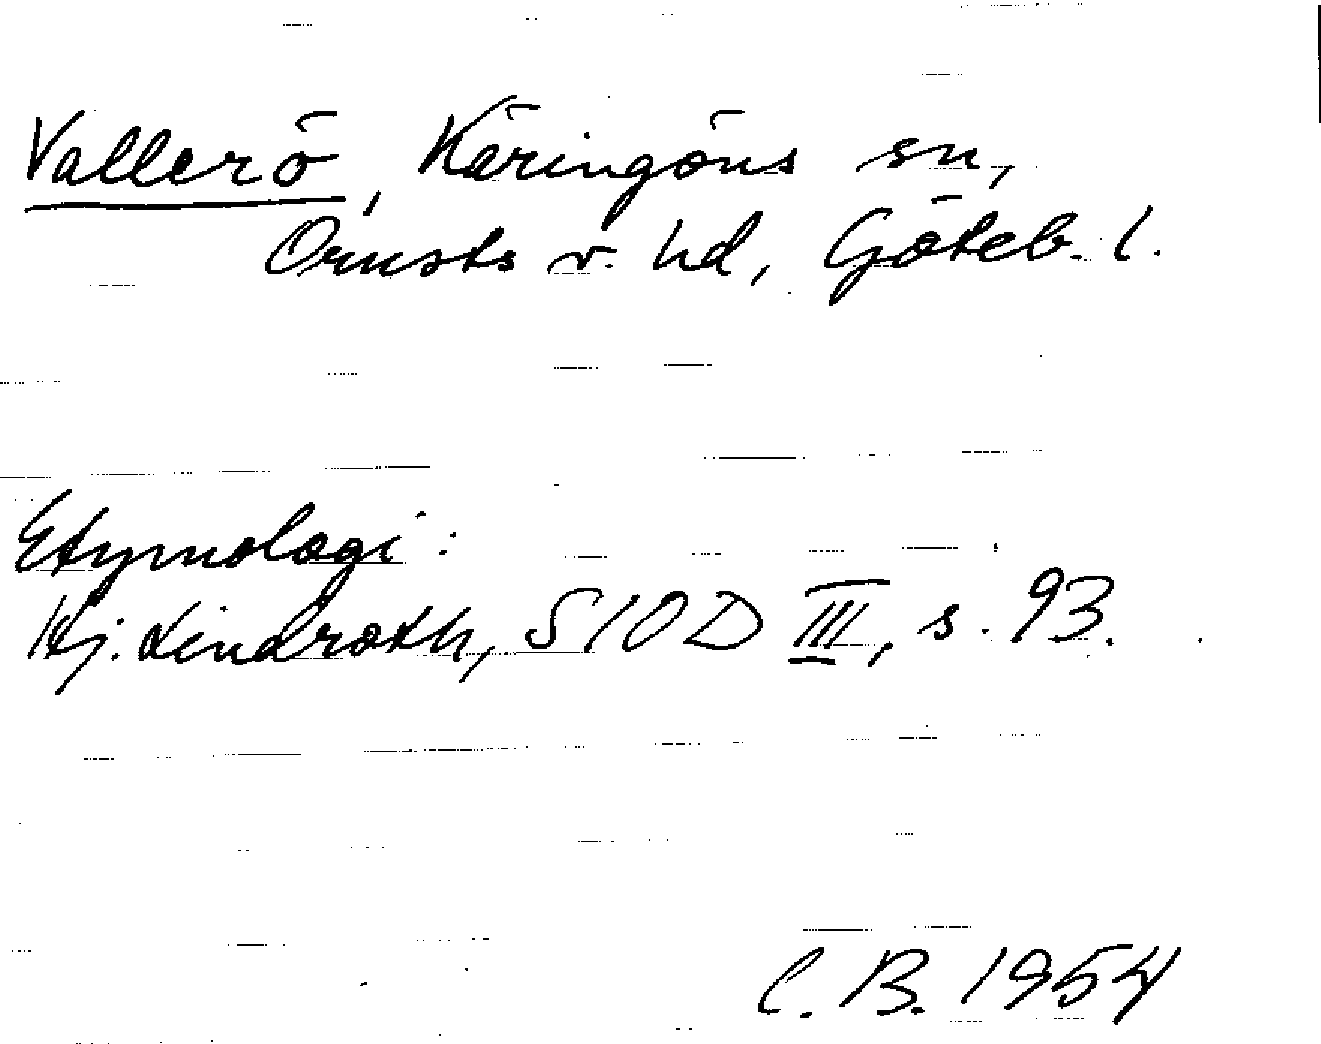 Vallerö, Käringöns sn,
Orusts v. hd, Göteb. l.
Etymologi:
Hj. Lindroth, SIOD III, s. 93.
C. B. 1954